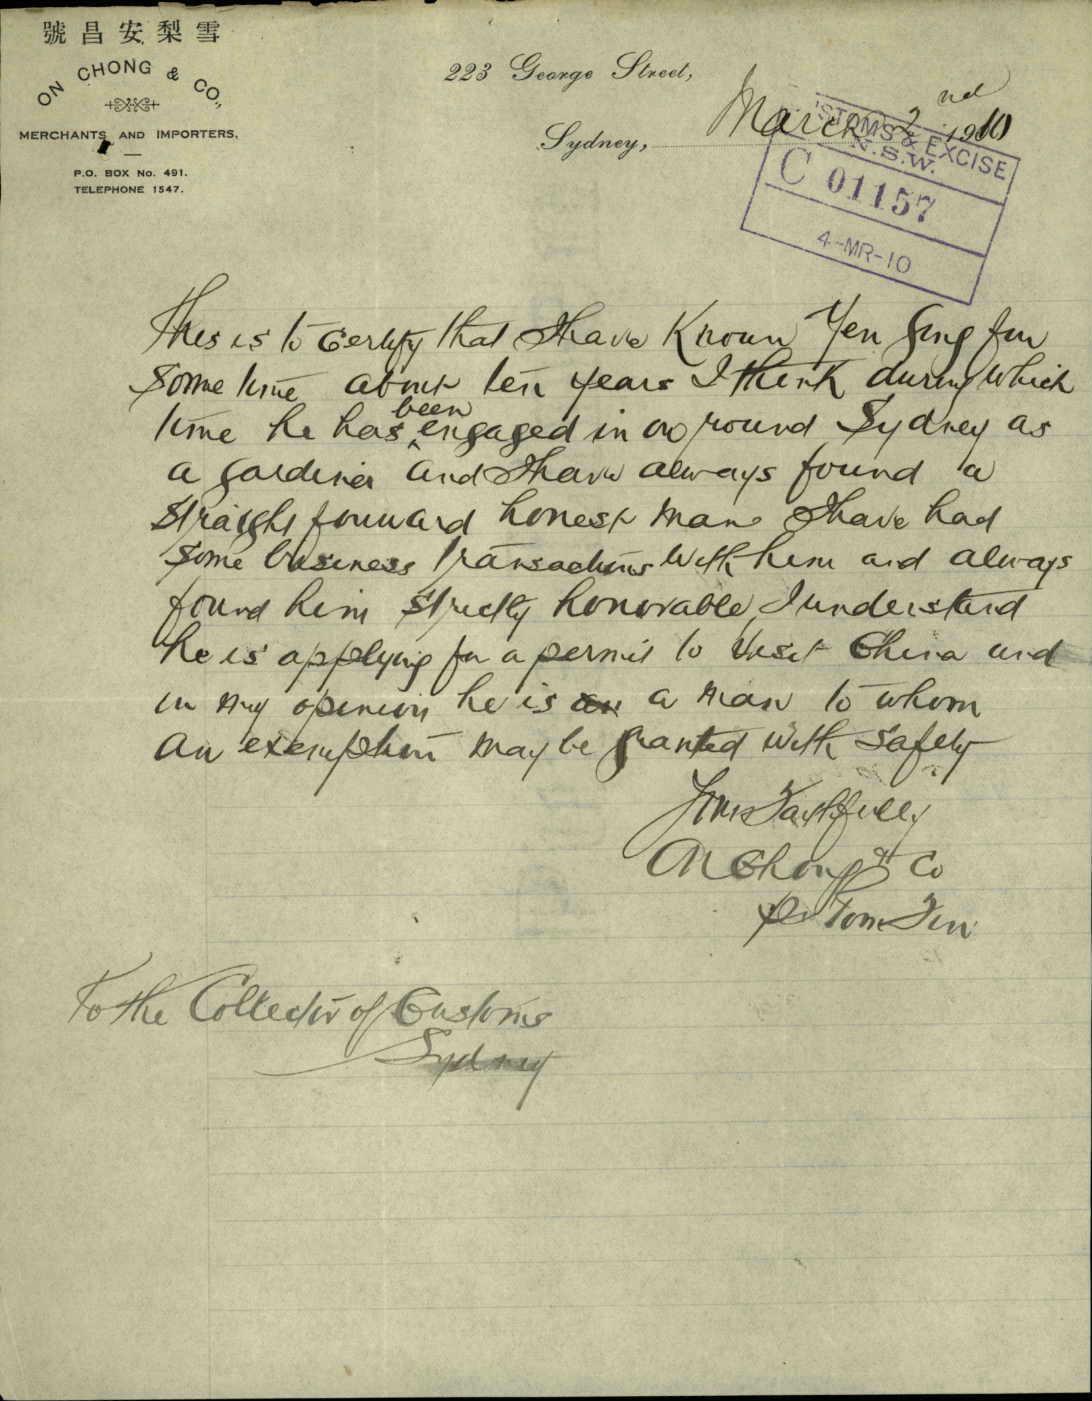 號昌安梨雪
ON CHONG & CO.,
MERCHANTS AND IMPORTERS.
P.O. BOX No. 491.
TELEPHONE 1547.
223 George Street,
Sydney, March 2nd 1910
STOMS & EXCISE
N.S.W.
C 01157
4-MR-10
This is to Certify that I have Known Yen Ging for
Some time about ten years I think during which
time he has been engaged in or round Sydney as
a gardiner and I have always found a
straight forward honest man I have had
some business transactions with him and always
found him strictly honorable, I understand
he is applying for a permit to visit China and
in my opinion he is an a man to whom
an exemption may be granted with safety
Yours Faithfully
On Chong & Co
Per Tom
To the Collector of Customs
Sydney